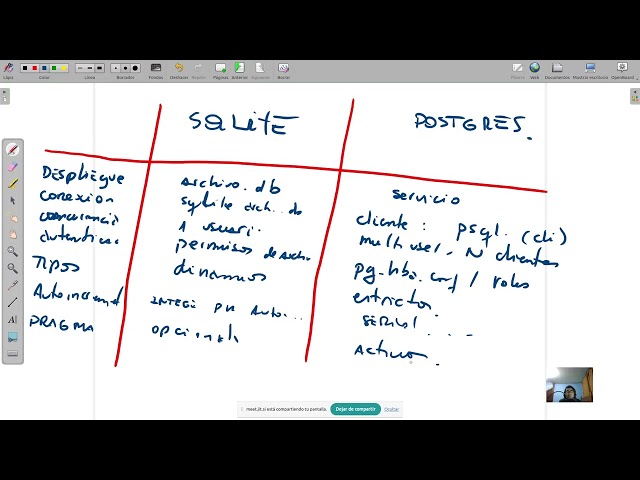 Lápiz Color Línea Borrador Fondos Deshacer Rehacer Anterior Siguiente Borrar Pizarra Web Documentos Mostrar escritorio OpenBoard
SQLITE POSTGRES.
Despliegue archivo.db servicio
conexion sqlite arch..db cliente : psql. (cli)
concurrencia 1 usuari. multiuser, N clientes
autentica. permisos de archi. pg-hba.conf / roles
TIPOS dinamicos estrictos.
Autoincrement INTEGE PK AUTO... SERIAL ...
PRAGMA opcional activo.
meet.jit.si está compartiendo tu pantalla. Dejar de compartir Ocultar